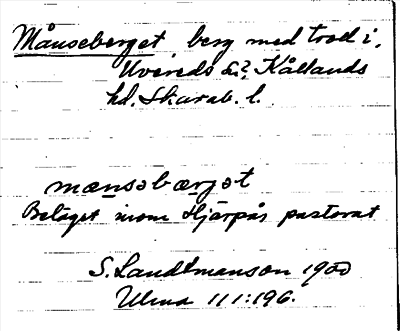 Månseberget, berg med troll i,
Uvereds s:n, Kållands
hd. Skarab. l.
mænsəbærjət
Beläget inom Hjärpås pastorat
S. Landtmanson 1900
Ulma 111:196.